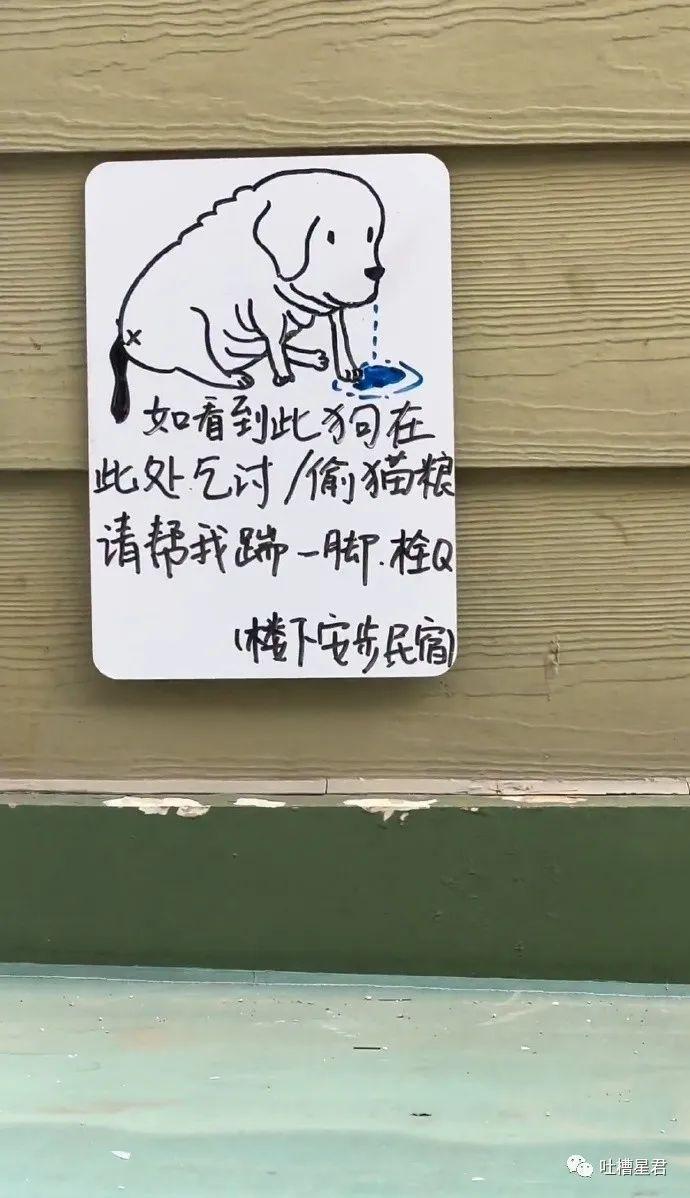 如看到此狗在
此处乞讨/偷猫粮
请帮我踹一脚.栓Q
(楼下安步民宿)
吐槽星君